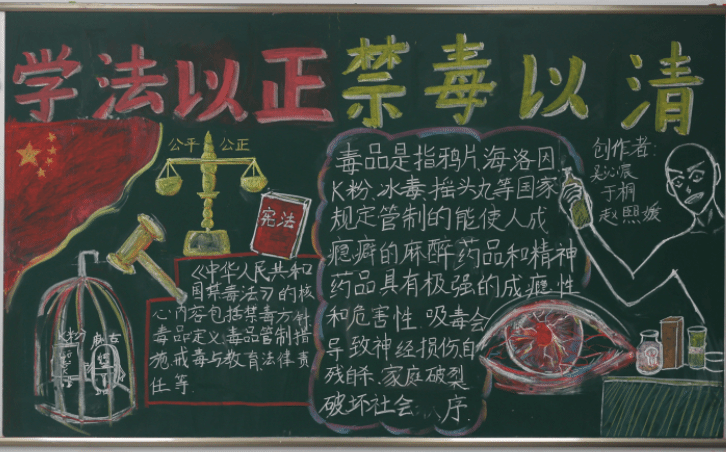 学法以正 禁毒以清
公平 公正
宪法
《中华人民共和
国禁毒法》的核
心内容包括禁毒方针
毒品定义、毒品管制措
施、戒毒与教育法律责
任等.
K粉
麻古
毒品是指鸦片、海洛因
K粉、冰毒、摇头丸等国家
规定管制的能使人成
瘾癖的麻醉药品和精神
药品具有极强的成瘾性
和危害性.吸毒会
导致神经损伤,自
残自杀、家庭破裂
破坏社会 序.
创作者:
于桐
赵熙媛